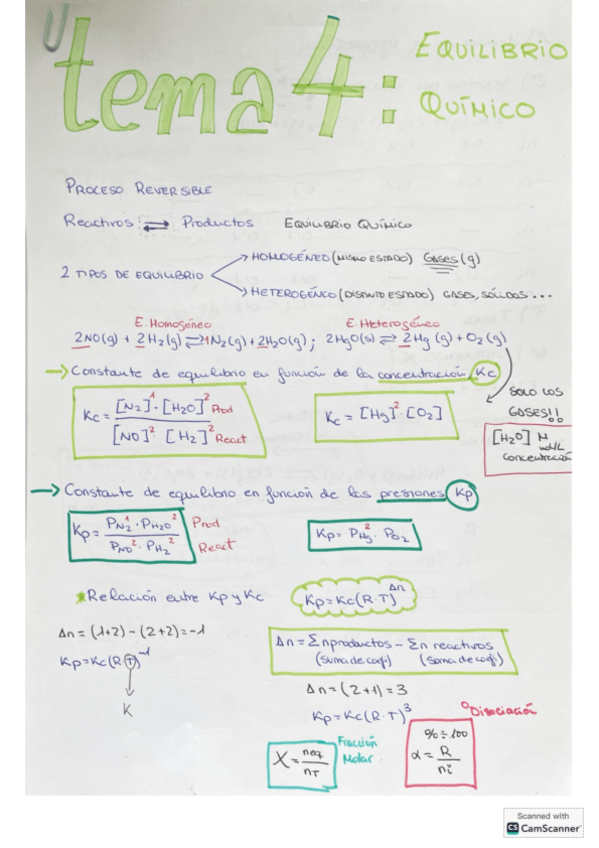 tema 4: EQUILIBRIO
QUÍMICO
PROCESO REVERSIBLE
Reactivos ⇌ Productos EQUILIBRIO QUÍMICO
2 TIPOS DE EQUILIBRIO
→ HOMOGÉNEO (MISMO ESTADO) GASES (g)
→ HETEROGÉNEO (DISTINTO ESTADO) GASES, SÓLIDOS...
E. Homogéneo E. Heterogéneo
2NO(g) + 2H₂(g) ⇌ 1N₂(g) + 2H₂O(g) ; 2HgO(s) ⇌ 2Hg(g) + O₂(g)
→ Constante de equilibrio en función de la concentración, Kc
SOLO LOS
GASES!!
Kc = [N₂]¹ · [H₂O]² Prod / [NO]² · [H₂]² React
Kc = [Hg]² · [O₂]
[H₂O] M
mol/L
concentración
→ Constante de equilibrio en función de las presiones Kp
Kp = P N₂¹ · P H₂O² Prod / P NO² · P H₂² React
Kp = P Hg² · P O₂
*Relación entre Kp y Kc Kp = Kc (R·T)^Δn
Δn = (1+2) - (2+2) = -1
Δn = Σn productos - Σn reactivos
(suma de coef) (suma de coef.)
Kp = Kc (R T)⁻¹
K
Δn = (2+1) = 3
Kp = Kc (R·T)³
Disociación
X = neq / nT
Fracción
Molar
% ÷ 100
α = R / ni
Scanned with
CS CamScanner